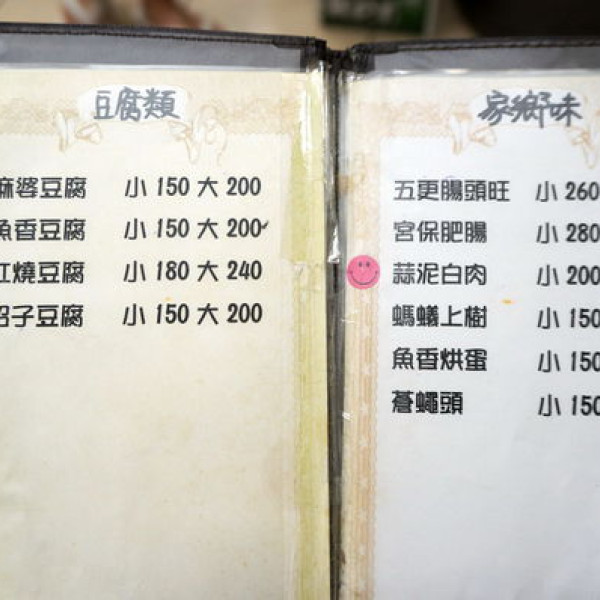 豆腐類
麻婆豆腐 小 150 大 200
魚香豆腐 小 150 大 200
紅燒豆腐 小 180 大 240
豆腐 小 150 大 200
家鄉味
五更腸頭旺 小 260
宮保肥腸 小 280
蒜泥白肉 小 200
螞蟻上樹 小 150
魚香烘蛋 小 150
蒼蠅頭 小 150